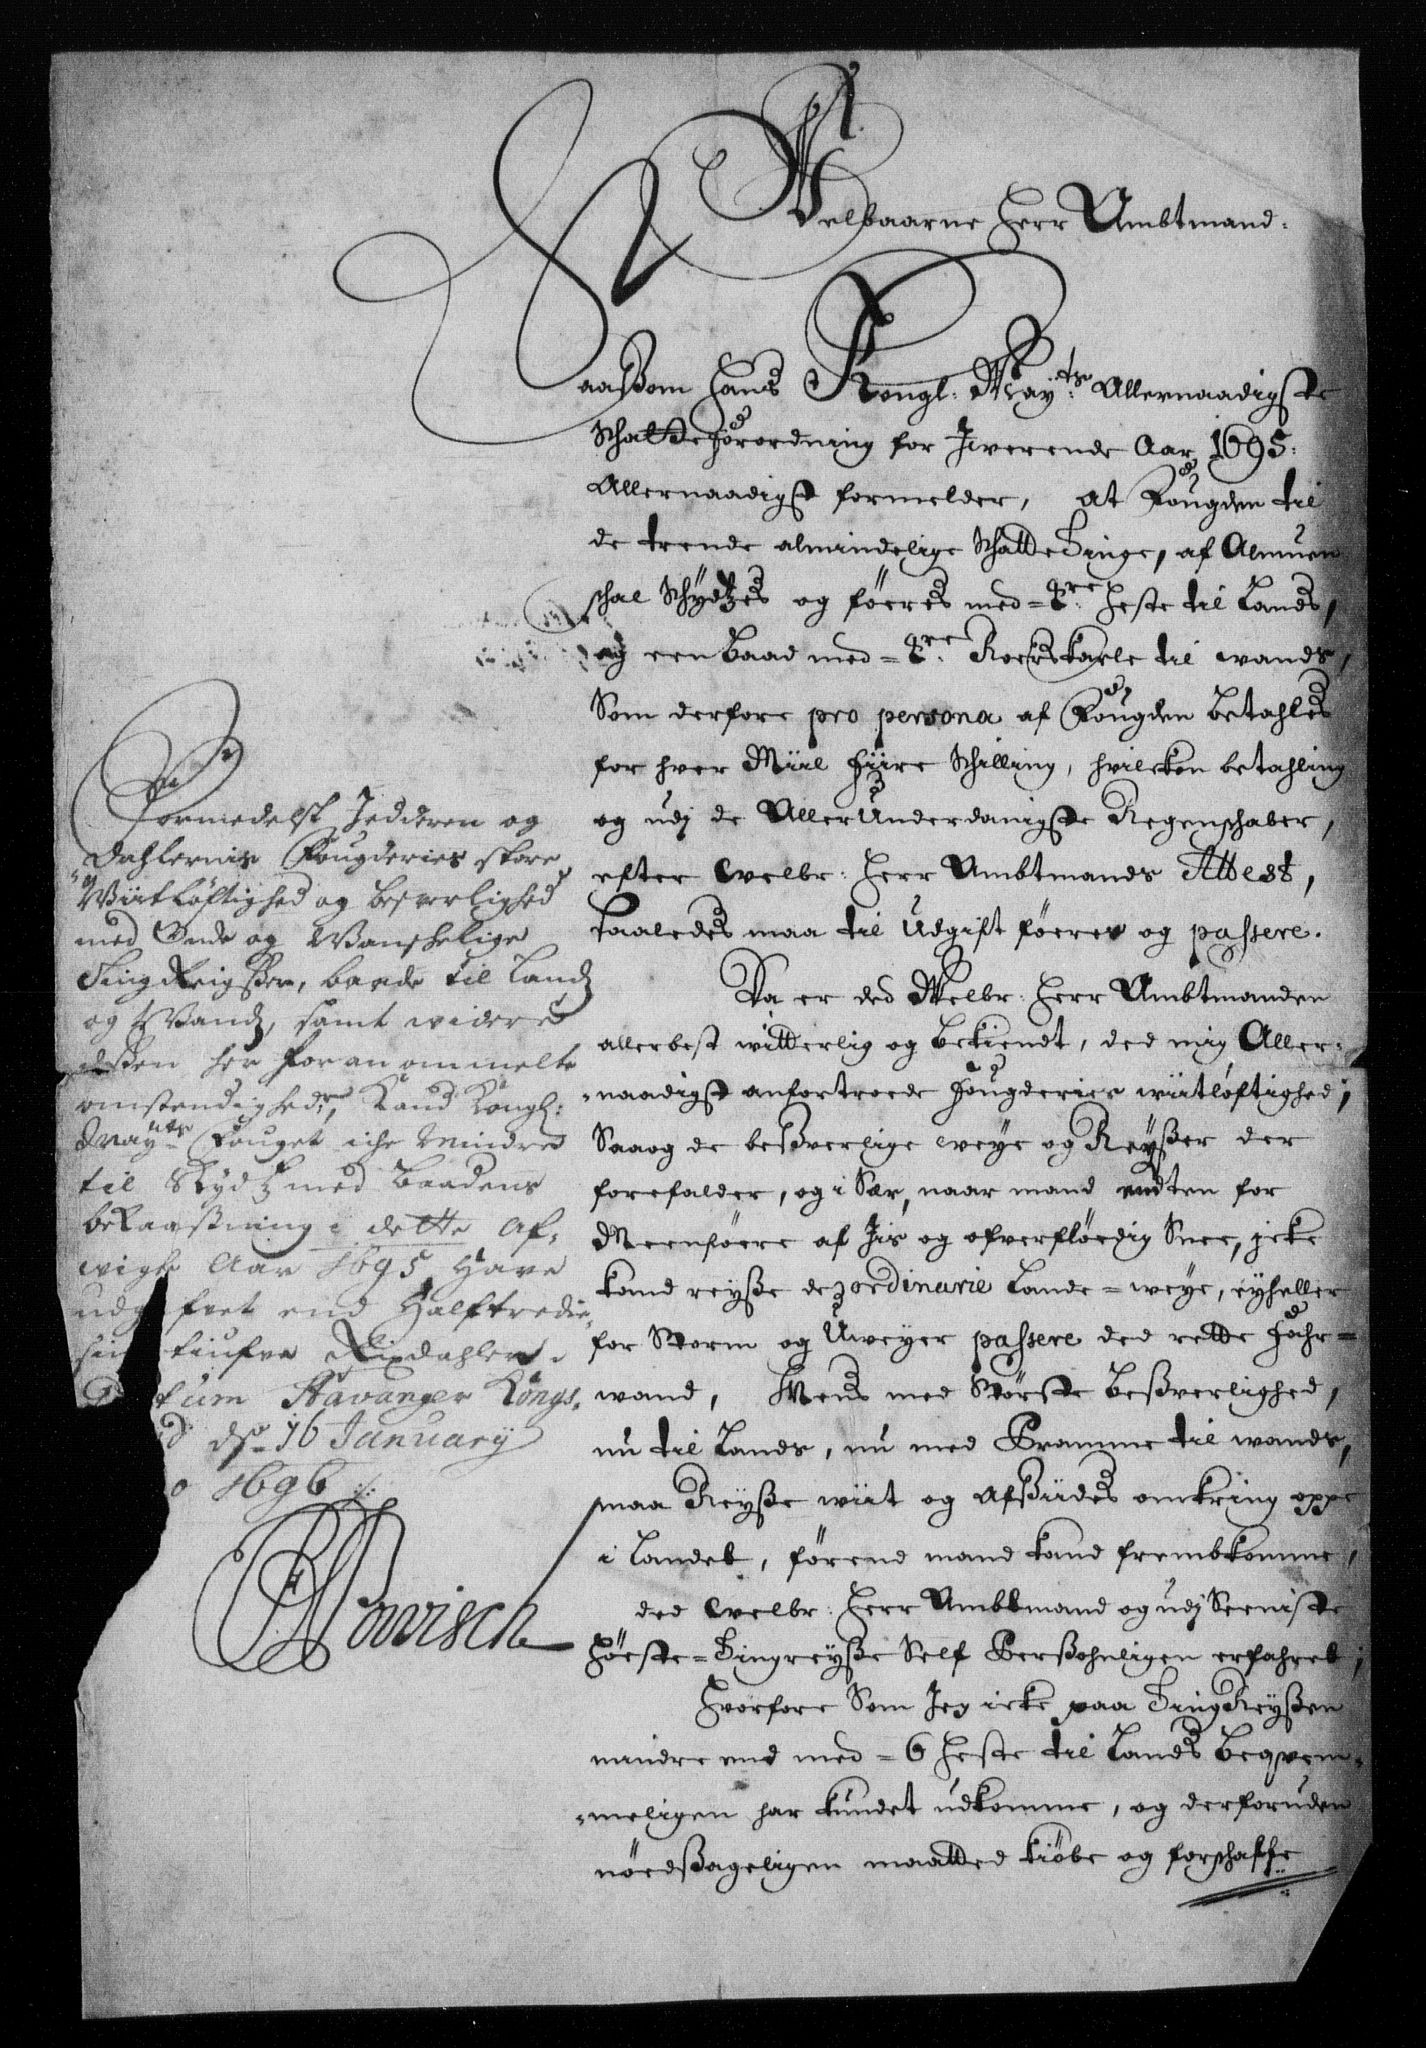 Welbaarne Herr Ambtmand.
Saasom Hans Kongl: May:ts Allernaadigste
Schatte Forordning for Jnverende Aar 1695:
Allernaadigst formelder, at Fougden til
de trende almindelige Schatte Tinge, af Almuen
schal Schydtzes og föeres med = Heste til Lands,
og een Baad med = Roerskarle til wands,
Som derfore pro persona af Fougden betahles
for hver Miil fiire Schilling, hvilcken betahling
og udj de AllerUnderdanigste Regenschaber,
efter welbr: Herr Ambtmands Attest,
saaledes maa til Udgift föeres og passere.
Da er ded Welbr: Herr Ambtmanden
allerbest witterlig og bekiendt, ded mig Aller-
-naadigst anfortroede Fougderies wiitlöftighed;
Saa og de besverlige weye og Reyßer der
forefalder, og i Sær, naar mand endten for
Meenföere af Jis og ofverflöedig Snee, icke
kand reyße de ordinarie Lande = weye, eyheller
for Storm og Uweyer passere ded rette Fahr =
wand, Mens med Störste beßverlighed,
nu til Lands, nu med Pramme til wands,
maa Reyße wiit og afsiides omkring oppe
i Landet, förend mand kand frembkomme,
ded welbr: Herr Ambtmand og udj Seeniste
Höeste = Tingreyße Self Perßohnligen erfahret;
Hvorfore Som Jeg icke paa TingReyßen
mindre end med = 6 Heste til Lands beqvem-
-meligen har kundet udkomme, og derforuden
nöedsageligen maatted kiöbe og forschaffe
Formedelst Jedderen og
Dahlernis Fougderies store
Wiitlöftighed og besverlighed
med Onde og Wanschelige
TingReigßer, baade til Landz
og Wandz, samt widere
deßen her foran ommelte
omstendigheder, Kand Kongl:
Mayts Fouget iche Mindre
til Skydtz med Baadens
bekaastning i dette af-
wigte Aar 1695 Have
udgifvet end Halftredie-
sin tiufve Rixdahler.
Datum Stavanger Kongs-
d. 16 January
1696